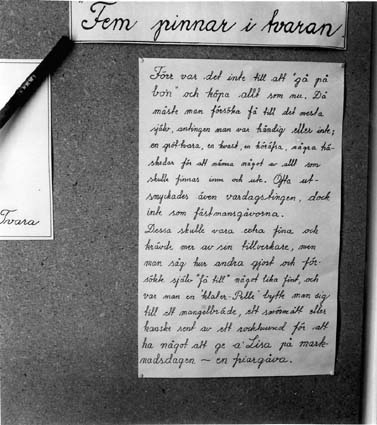 "Fem pinnar i tvaran
Förr var det inte till att "gå på
bo'n" och köpa allt som nu. Då
måste man försöka få till det mesta
själv, antingen man var händig eller inte;
en grötkvara, en kvast, en höräfsa, några trä-
skedar för att nämna något av allt som
skulle finnas inne och ute. Ofta ut-
smyckades även vardagstingen, dock
inte som fästmansgåvorna.
Dessa skulle vara extra fina och
krävde mer av sin tillverkare, men
man såg hur andra gjort och för-
sökte själv "få till" något lika fint, och
var man en "klater-Pelle" bytte man sig
till ett mangelbräde, ett smörmått eller
kanske rent av ett rockhuvud för att
ha något att ge a' Lisa på mark-
nadsdagen – en friargåva.
Tvara